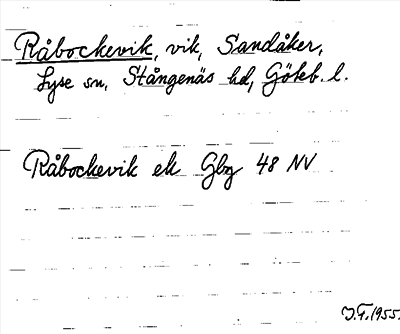 Råbockevik, vik, Sandåker,
Lyse sn, Stångenäs hd, Göteb. l.
Råbockevik ek Gbg 48 NV
J.F. 1955.